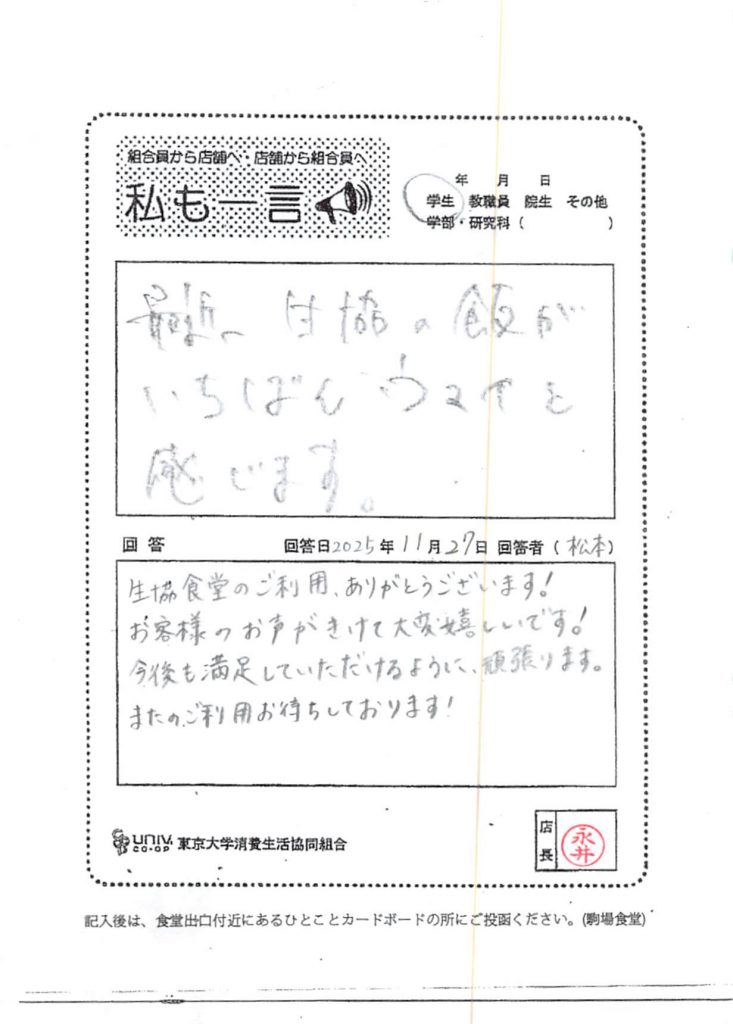 組合員から店舗へ・店舗から組合員へ
私も一言
年 月 日
学生 教職員 院生 その他
学部・研究科( )
最近、生協の飯が
いちばんウマイと
感じます。
回答 回答日2025年11月27日 回答者(松本)
生協食堂のご利用、ありがとうございます!
お客様のお声がきけて大変嬉しいです!
今後も満足していただけるように、頑張ります。
またのご利用お待ちしております!
UNIV. CO-OP 東京大学消費生活協同組合
店長 永井
記入後は、食堂出口付近にあるひとことカードボードの所にご投函ください。(駒場食堂)